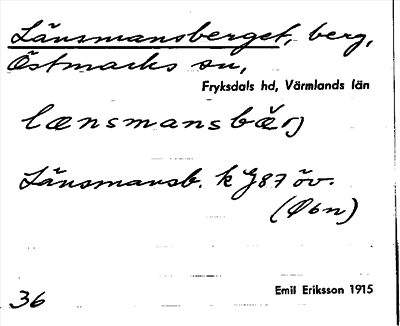 Länsmansberget, berg,
Östmarks sn,
Fryksdals hd, Värmlands län
lænsmansbæ̌r)
Länsmansb. k J87 öv.
(Øbn)
36
Emil Eriksson 1915